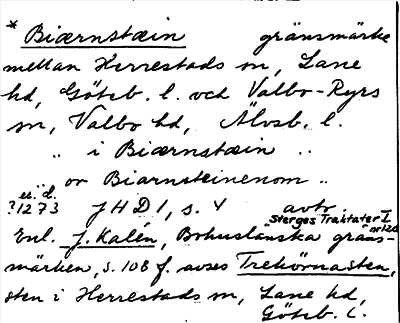 * Biærnstæin gränsmärke
mellan Herrestads sn, Lane
hd, Göteb. l. och Valbo-Ryrs
sn, Valbo hd, Älvsb. l.
" i Biærnstæin "
or Biarnsteinenom "
el. d.
? 1273 JHD 1, s. 4 avtr.
Sverges Traktater I
nr 120
Enl. J. Kalén, Bohuslänska gräns-
märken, s. 108 f. avses Trehörnasten,
sten i Herrestads sn, Lane hd,
Göteb. l.